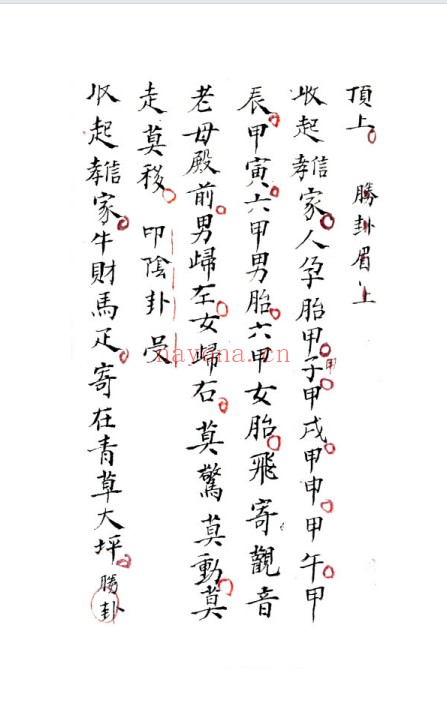 頂上 勝卦眉上
收起孝信家人孕胎甲子甲戌甲申甲午甲
辰甲寅六甲男胎六甲女胎飛寄觀音
老母殿前男歸左女歸右莫驚莫動莫
走莫移 叩陰卦
收起孝信家牛財馬疋寄在青草大坪勝卦
甲
nayona.cn